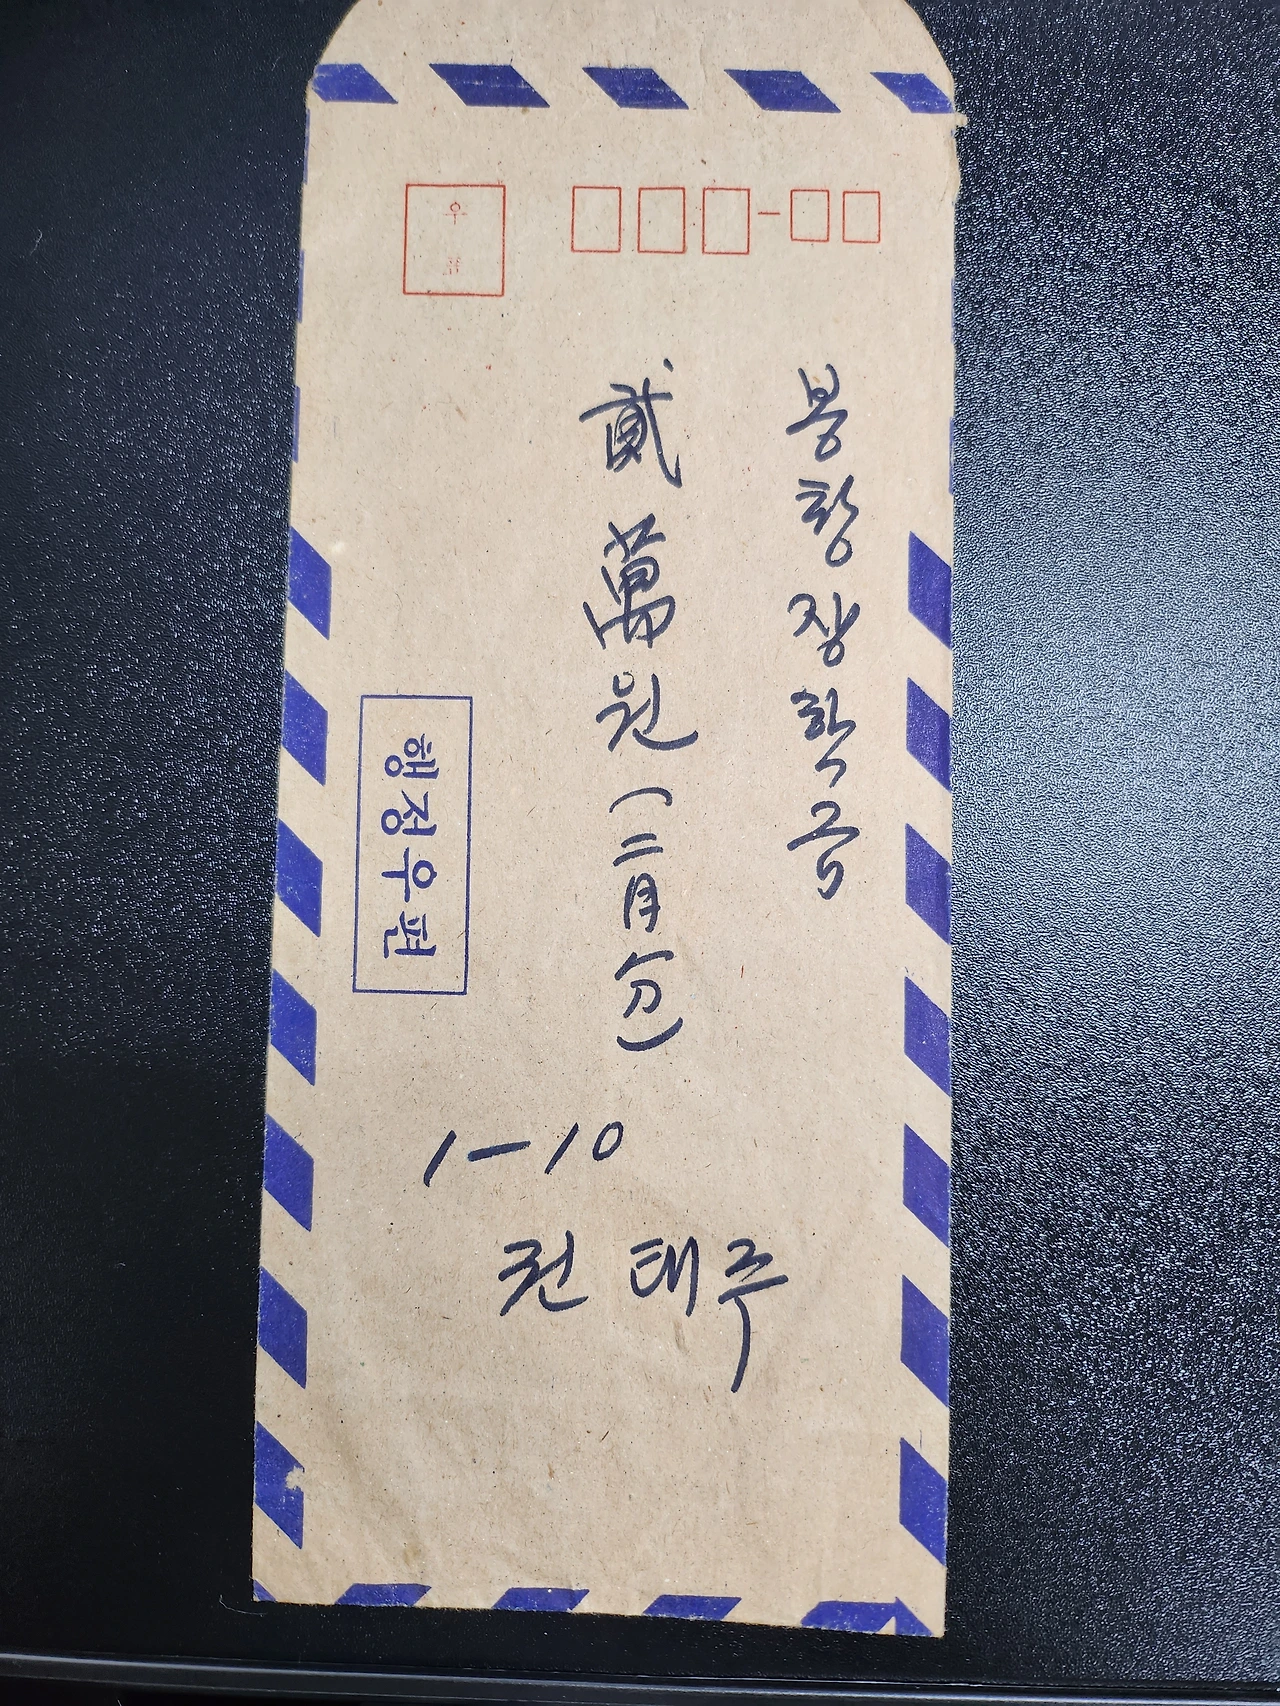 우표
봉황장학금
貳萬원(二月分)
행정우편
1-10
권태주